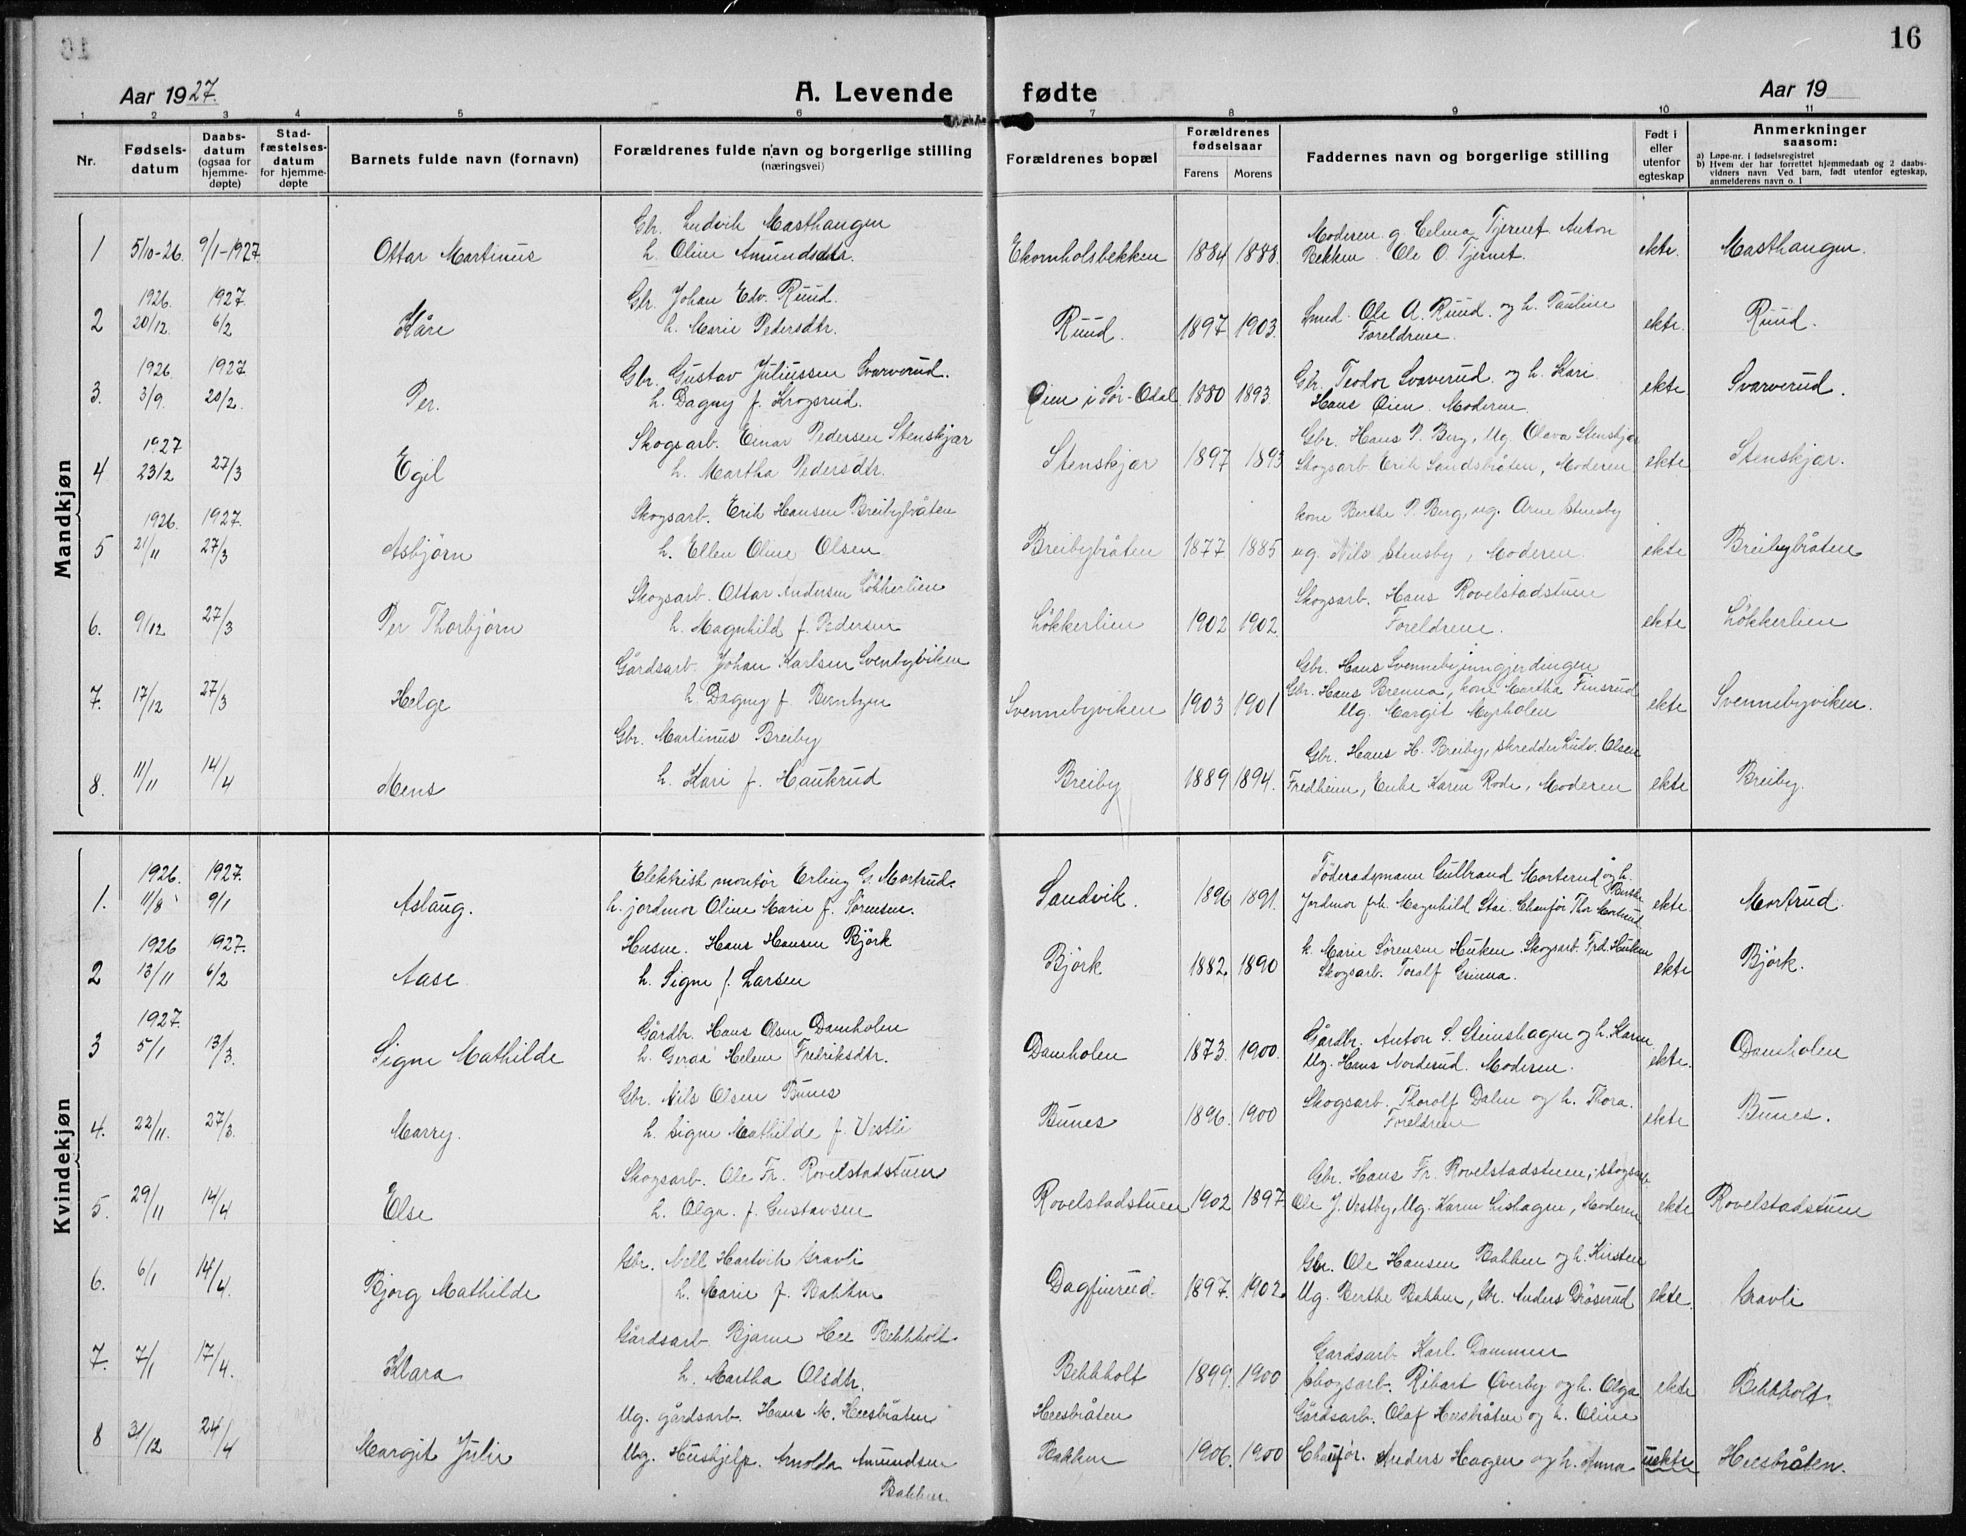 16
Aar 1927.
A. Levende fødte
Aar 19
1 2 3 4 5 6 7 8 9 10 11
Nr.
Fødsels-datum
Daabs-datum (ogsaa for hjemme-døpte)
Stad-fæstelses-datum for hjemme-døpte
Barnets fulde navn (fornavn)
Forældrenes fulde navn og borgerlige stilling (næringsvei)
Forældrenes bopæl
Forældrenes fødselsaar
Farens Morens
Faddernes navn og borgerlige stilling
Født i eller utenfor egteskap
Anmerkninger saasom:
a) Løpe-nr. i fødselsregistret
b) Hvem der har forrettet hjemmedaab og 2 daabs-vidners navn. Ved barn, født utenfor egteskap, anmelderens navn o. l
Mandkjøn
Gbr. Ludvik Masthaugen
Moderen g. Helma Tjernet. Anton
1 5/10-26. 9/1-1927. Ottar Martinus h. Oline Amundsdtr. Ekornholsbekken 1884 1888. Bekken Ole O. Tjernet. ekte. Masthaugen.
1926. 1927 Gbr. Johan Edv. Ruud.
2 20/12. 6/2 Kåre h. Marie Pedersdtr. Ruud. 1897. 1903. Smed. Ole A. Ruud. og h. Pauline Foreldrene. ekte. Ruud.
1926. 1927 Gbr. Gustav Juliussen Svarverud.
Gbr. Teodor Svarverud. og h. Kari.
3. 3/9. 20/2. Per. h. Dagny f. Krogsrud. Öien i Sör-Odal 1880 1893 Hans Öien. Moderen. ekte Svarverud.
1927 Skogsarb. Einar Pedersen Stenskjær
Gbr. Hans P. Berg, Ug. Olava Stenskjær
4 23/2 27/3 Egil h. Martha Pedersdtr. Stenskjær 1897 1893 Skogsarb. Erik Sandsbråten, Moderen ekte Stenskjær.
1926. 1927. Skogsarb. Erik Hansen Breibybråten
kone Berthe P. Berg, ug. Arne Stensby
5 21/11 27/3 Asbjørn h. Ellen Oline Olsen Breibybråten 1877 1885 ug. Nils Stensby, Moderen. ekte Breibybråten
Skogsarb. Ottar Andersen Løkkerlien
Skogsarb. Hans Rovelstadstuen
6. 9/12 27/3 Per Thorbjørn h. Magnhild f. Pedersen Løkkerlien 1902 1902 Foreldrene. ekte Løkkerlien
Gårdsarb. Johan Karlsen Svenbyviken
Gbr. Hans Svennebyinngjerdingen
7. 17/12 27/3 Helge h. Dagny f. Berntzen Svennebyviken 1903 1901 Gbr. Hans Brenna, kone Martha Finsrud
Ug. Margit Myrholen ekte Svennebyviken.
Gbr. Martinus Breiby
Gbr. Hans H. Breiby, skredder Ludv. Olsen
8. 11/11 14/4 Mens h. Kari f. Haukrud Breiby 1889 1894. Fredheim, Enke Karen Rode, Moderen ekte Breiby.
Kvindekjøn
1926. 1927. Elektrisk montør Erling G. Mortrud.
Föderadsmann Gulbrand Morterud og h.
1. 11/8 9/1 Aslaug. h. jordmor Oline Marie f. Sørensen. Sandvik. 1896 1891. Jordmor frk. Magnhild Stai. Chauför Thor Mortrud ekte. Mortrud.
1926 1927. Husm. Hans Hansen Björk
h. Marie Sørensen Huken. Skogsarb. Frd. Huken
2 13/11 6/2 Aase h. Signe f. Larsen Björk 1882. 1890 Skogsarb. Toralf Grinna. ekte Björk.
1927. Gårdbr. Hans Olsen Damholen
Gårdbr. Anton S. Steinshagen og h. Karen
3 5/1 13/3. Signe Mathilde h. Helene Fredriksdtr. Damholen 1873. 1900. Ug. Hans Norderud. Moderen. ekte. Damholen
Gbr. Nils Olsen Bunes
Skogsarb. Thorolf Dalen og h. Thora.
4. 22/11. 27/3. Marry. h. Signe Mathilde f. Vestli Bunes 1896. 1900 Foreldrene ekte Bunes.
Skogsarb. Ole Fr. Rovelstadstuen
Gbr. Hans Fr. Rovelstadstuen, skogsarb.
5. 29/11 14/4 Else h. Olga. f. Gustavsen Rovelstadstuen 1902 1897. Ole J. Vestby, Ug. Karen Lishagen, Moderen ekte Rovelstadstuen
Gbr. Nell Hartvik Gravli
Gbr. Ole Hansen Bakken og h. Kirsten
6. 6/1 14/4. Bjørg Mathilde h. Marie f. Bakken Dagfinrud. 1897. 1902. Ug. Berthe Bakken, Gbr. Anders Gråserud ekte. Gravli
Gårdsarb. Bjarne Bekkholt
Gårdsarb. Karl Dammen
7. 7/1 17/4. Klara h. Martha Olsdtr. Bekkholt 1899. 1900 Skogsarb. Ribart Överby og h. Olga ekte Bekkholt.
Ug. gårdsarb. Hans M. Heesbråten Heesbråten
Gårdsarb. Olaf Heesbråten og h. Oline
8 31/12 24/4 Margit Julie Ug. Hushjelp. Arnolda Amundsen Bakken. Bakken 1906. 1900 Chauför. Anders Hagen og h. Anna uekte Heesbråten.